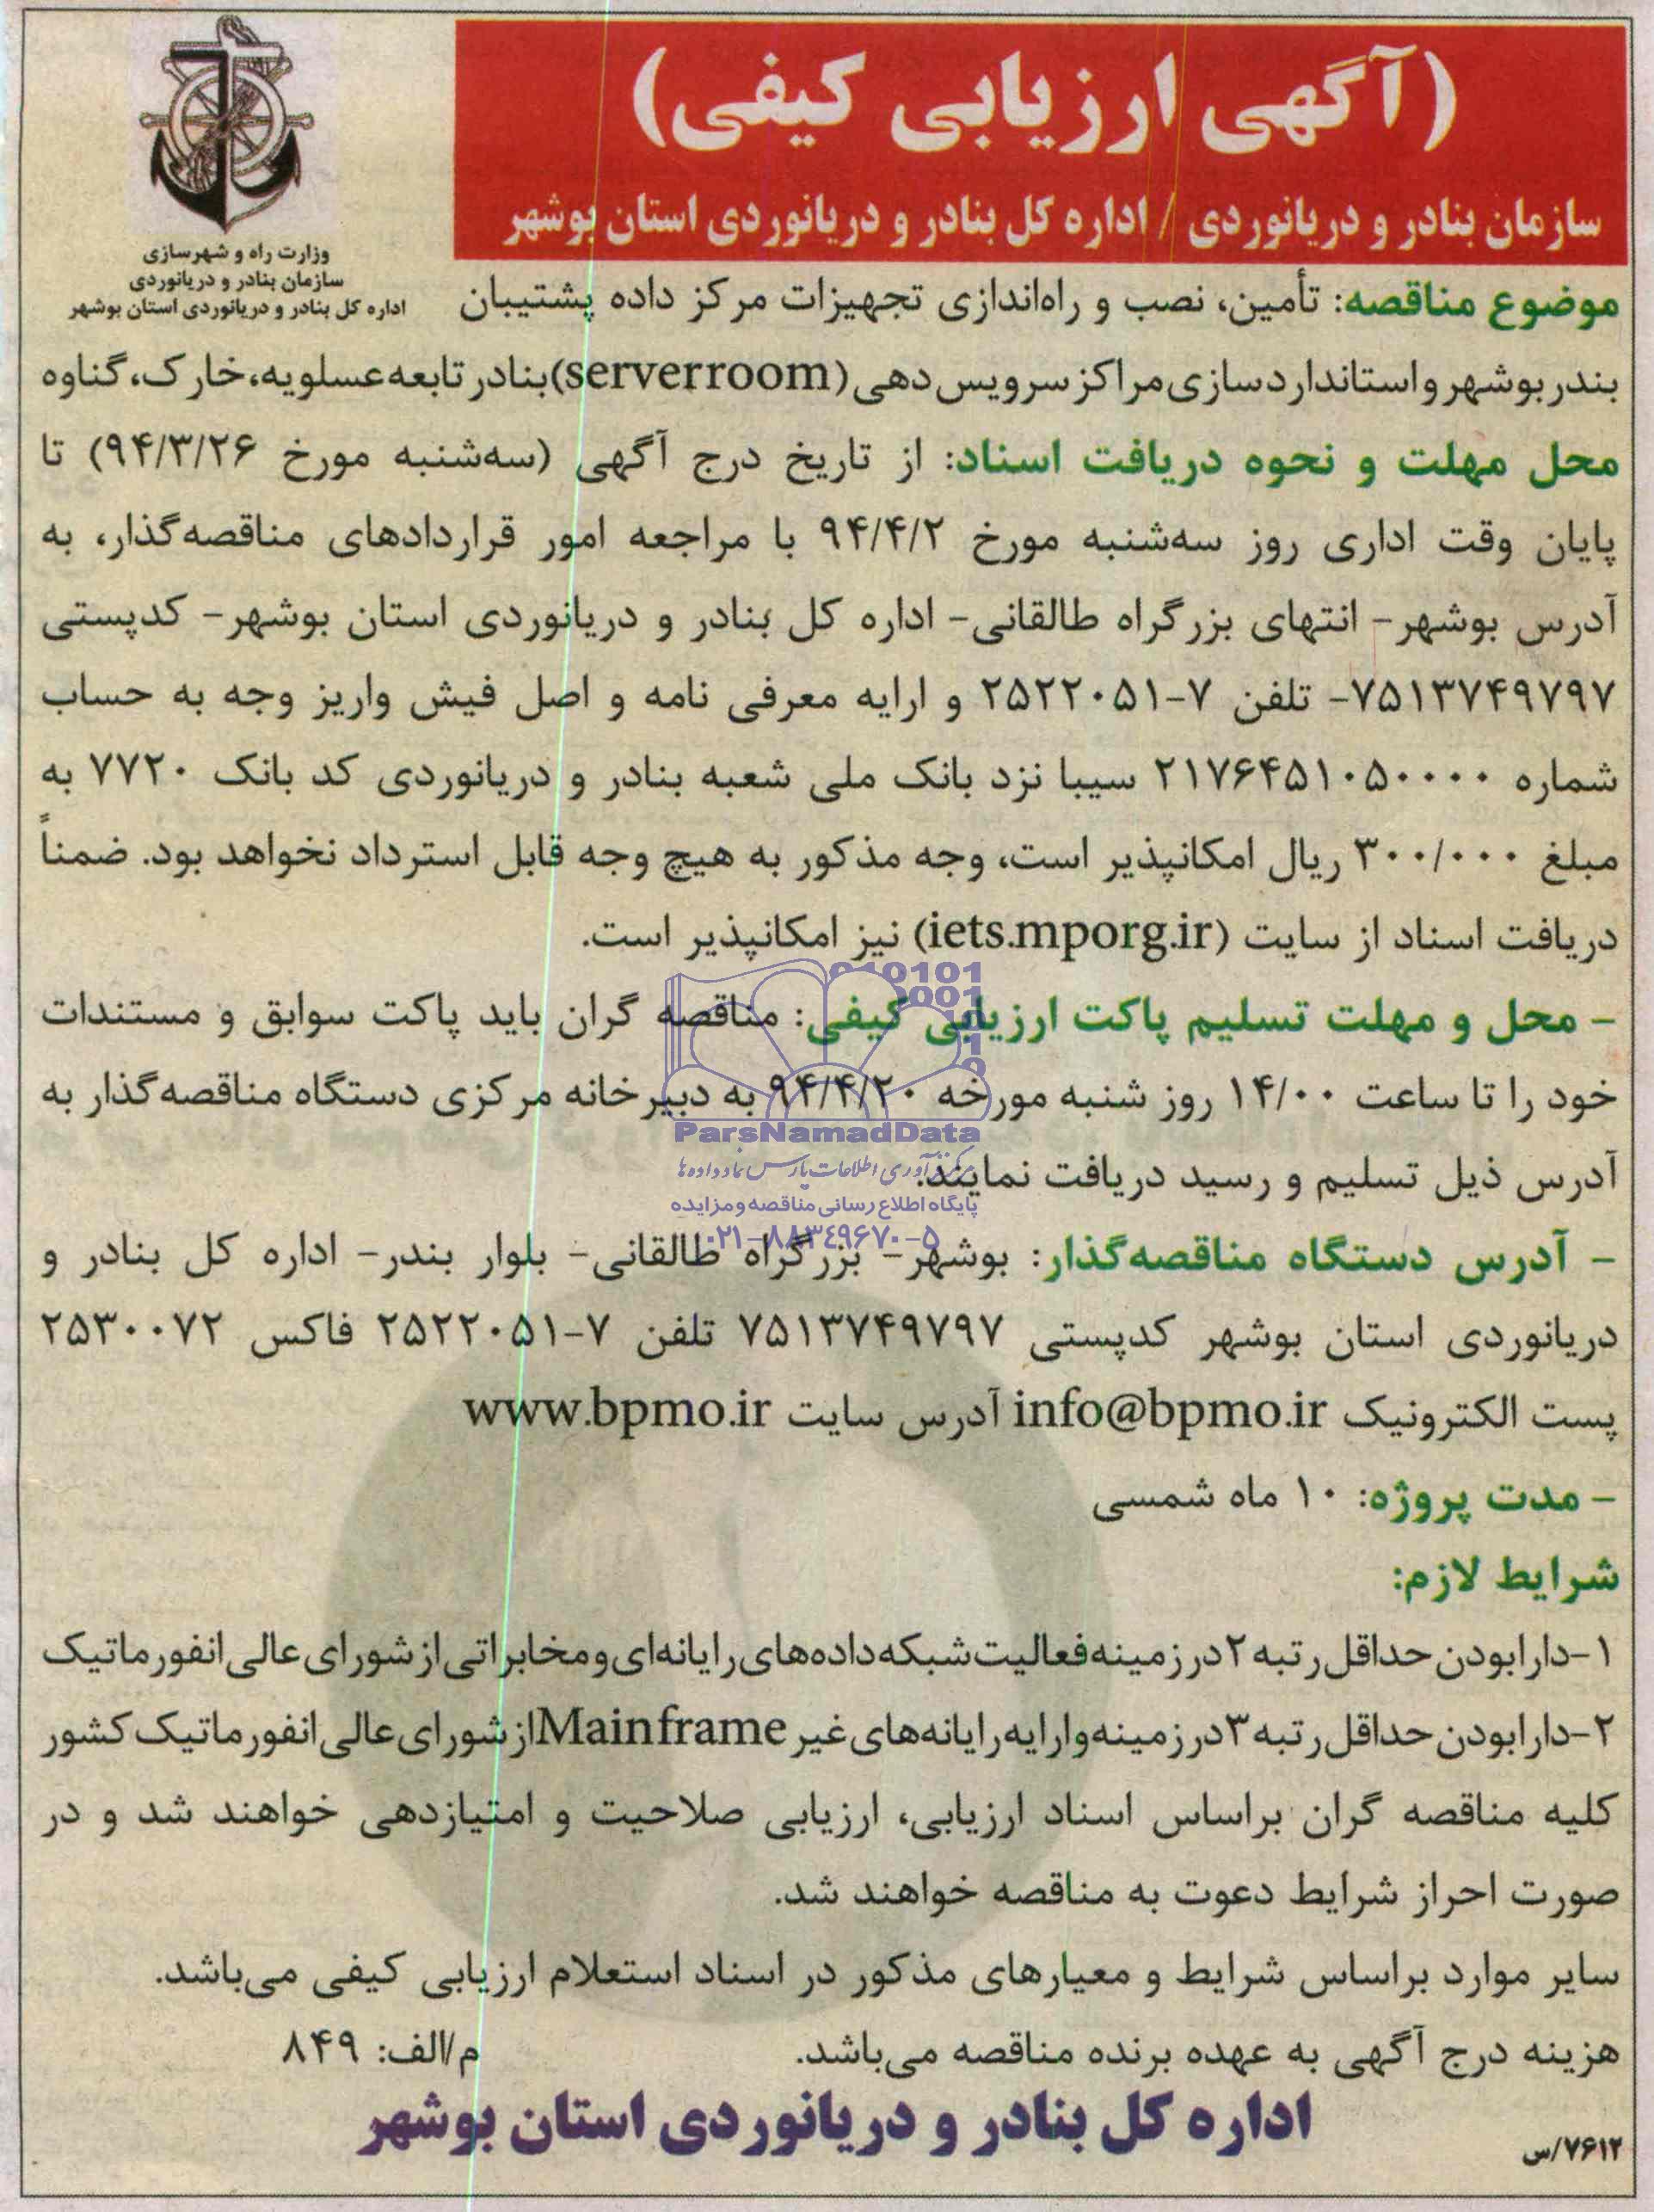 (آگهی ارزیابی کیفی)
سازمان بنادر و دریانوردی / اداره کل بنادر و دریانوردی استان بوشهر
وزارت راه و شهرسازی
سازمان بنادر و دریانوردی
اداره کل بنادر و دریانوردی استان بوشهر
موضوع مناقصه: تأمین، نصب و راه‌اندازی تجهیزات مرکز داده پشتیبان
بندر بوشهر و استاندارد سازی مراکز سرویس دهی (server room) بنادر تابعه عسلویه، خارک، گناوه
محل مهلت و نحوه دریافت اسناد: از تاریخ درج آگهی (سه‌شنبه مورخ ۹۴/۳/۲۶) تا
پایان وقت اداری روز سه‌شنبه مورخ ۹۴/۴/۲ با مراجعه امور قراردادهای مناقصه‌گذار، به
آدرس بوشهر- انتهای بزرگراه طالقانی- اداره کل بنادر و دریانوردی استان بوشهر- کدپستی
۷۵۱۳۷۴۹۷۹۷- تلفن ۷-۲۵۲۲۰۵۱ و ارایه معرفی نامه و اصل فیش واریز وجه به حساب
شماره ۲۱۷۶۴۵۱۰۵۰۰۰۰ سیبا نزد بانک ملی شعبه بنادر و دریانوردی کد بانک ۷۷۲۰ به
مبلغ ۳۰۰/۰۰۰ ریال امکانپذیر است، وجه مذکور به هیچ وجه قابل استرداد نخواهد بود. ضمناً
دریافت اسناد از سایت (iets.mporg.ir) نیز امکانپذیر است.
- محل و مهلت تسلیم پاکت ارزیابی کیفی: مناقصه گران باید پاکت سوابق و مستندات
خود را تا ساعت ۱۴/۰۰ روز شنبه مورخه ۹۴/۴/۲۰ به دبیرخانه مرکزی دستگاه مناقصه‌گذار به
آدرس ذیل تسلیم و رسید دریافت نمایند.
ParsNamadData
مرکز فرآوری اطلاعات پارس نماد داده‌ها
پایگاه اطلاع رسانی مناقصه و مزایده
۰۲۱-۸۸۳۴۹۶۷۰-۵
- آدرس دستگاه مناقصه‌گذار: بوشهر- بزرگراه طالقانی- بلوار بندر- اداره کل بنادر و
دریانوردی استان بوشهر کدپستی ۷۵۱۳۷۴۹۷۹۷ تلفن ۷-۲۵۲۲۰۵۱ فاکس ۲۵۳۰۰۷۲
پست الکترونیک info@bpmo.ir آدرس سایت www.bpmo.ir
- مدت پروژه: ۱۰ ماه شمسی
شرایط لازم:
۱-دارا بودن حداقل رتبه ۲ در زمینه فعالیت شبکه داده‌های رایانه‌ای و مخابراتی از شورای عالی انفورماتیک
۲-دارا بودن حداقل رتبه ۳ در زمینه و ارایه رایانه‌های غیر Main frame از شورای عالی انفورماتیک کشور
کلیه مناقصه گران براساس اسناد ارزیابی، ارزیابی صلاحیت و امتیازدهی خواهند شد و در
صورت احراز شرایط دعوت به مناقصه خواهند شد.
سایر موارد براساس شرایط و معیارهای مذکور در اسناد استعلام ارزیابی کیفی می‌باشد.
هزینه درج آگهی به عهده برنده مناقصه می‌باشد.
م/الف: ۸۴۹
اداره کل بنادر و دریانوردی استان بوشهر
۷۶۱۲/س